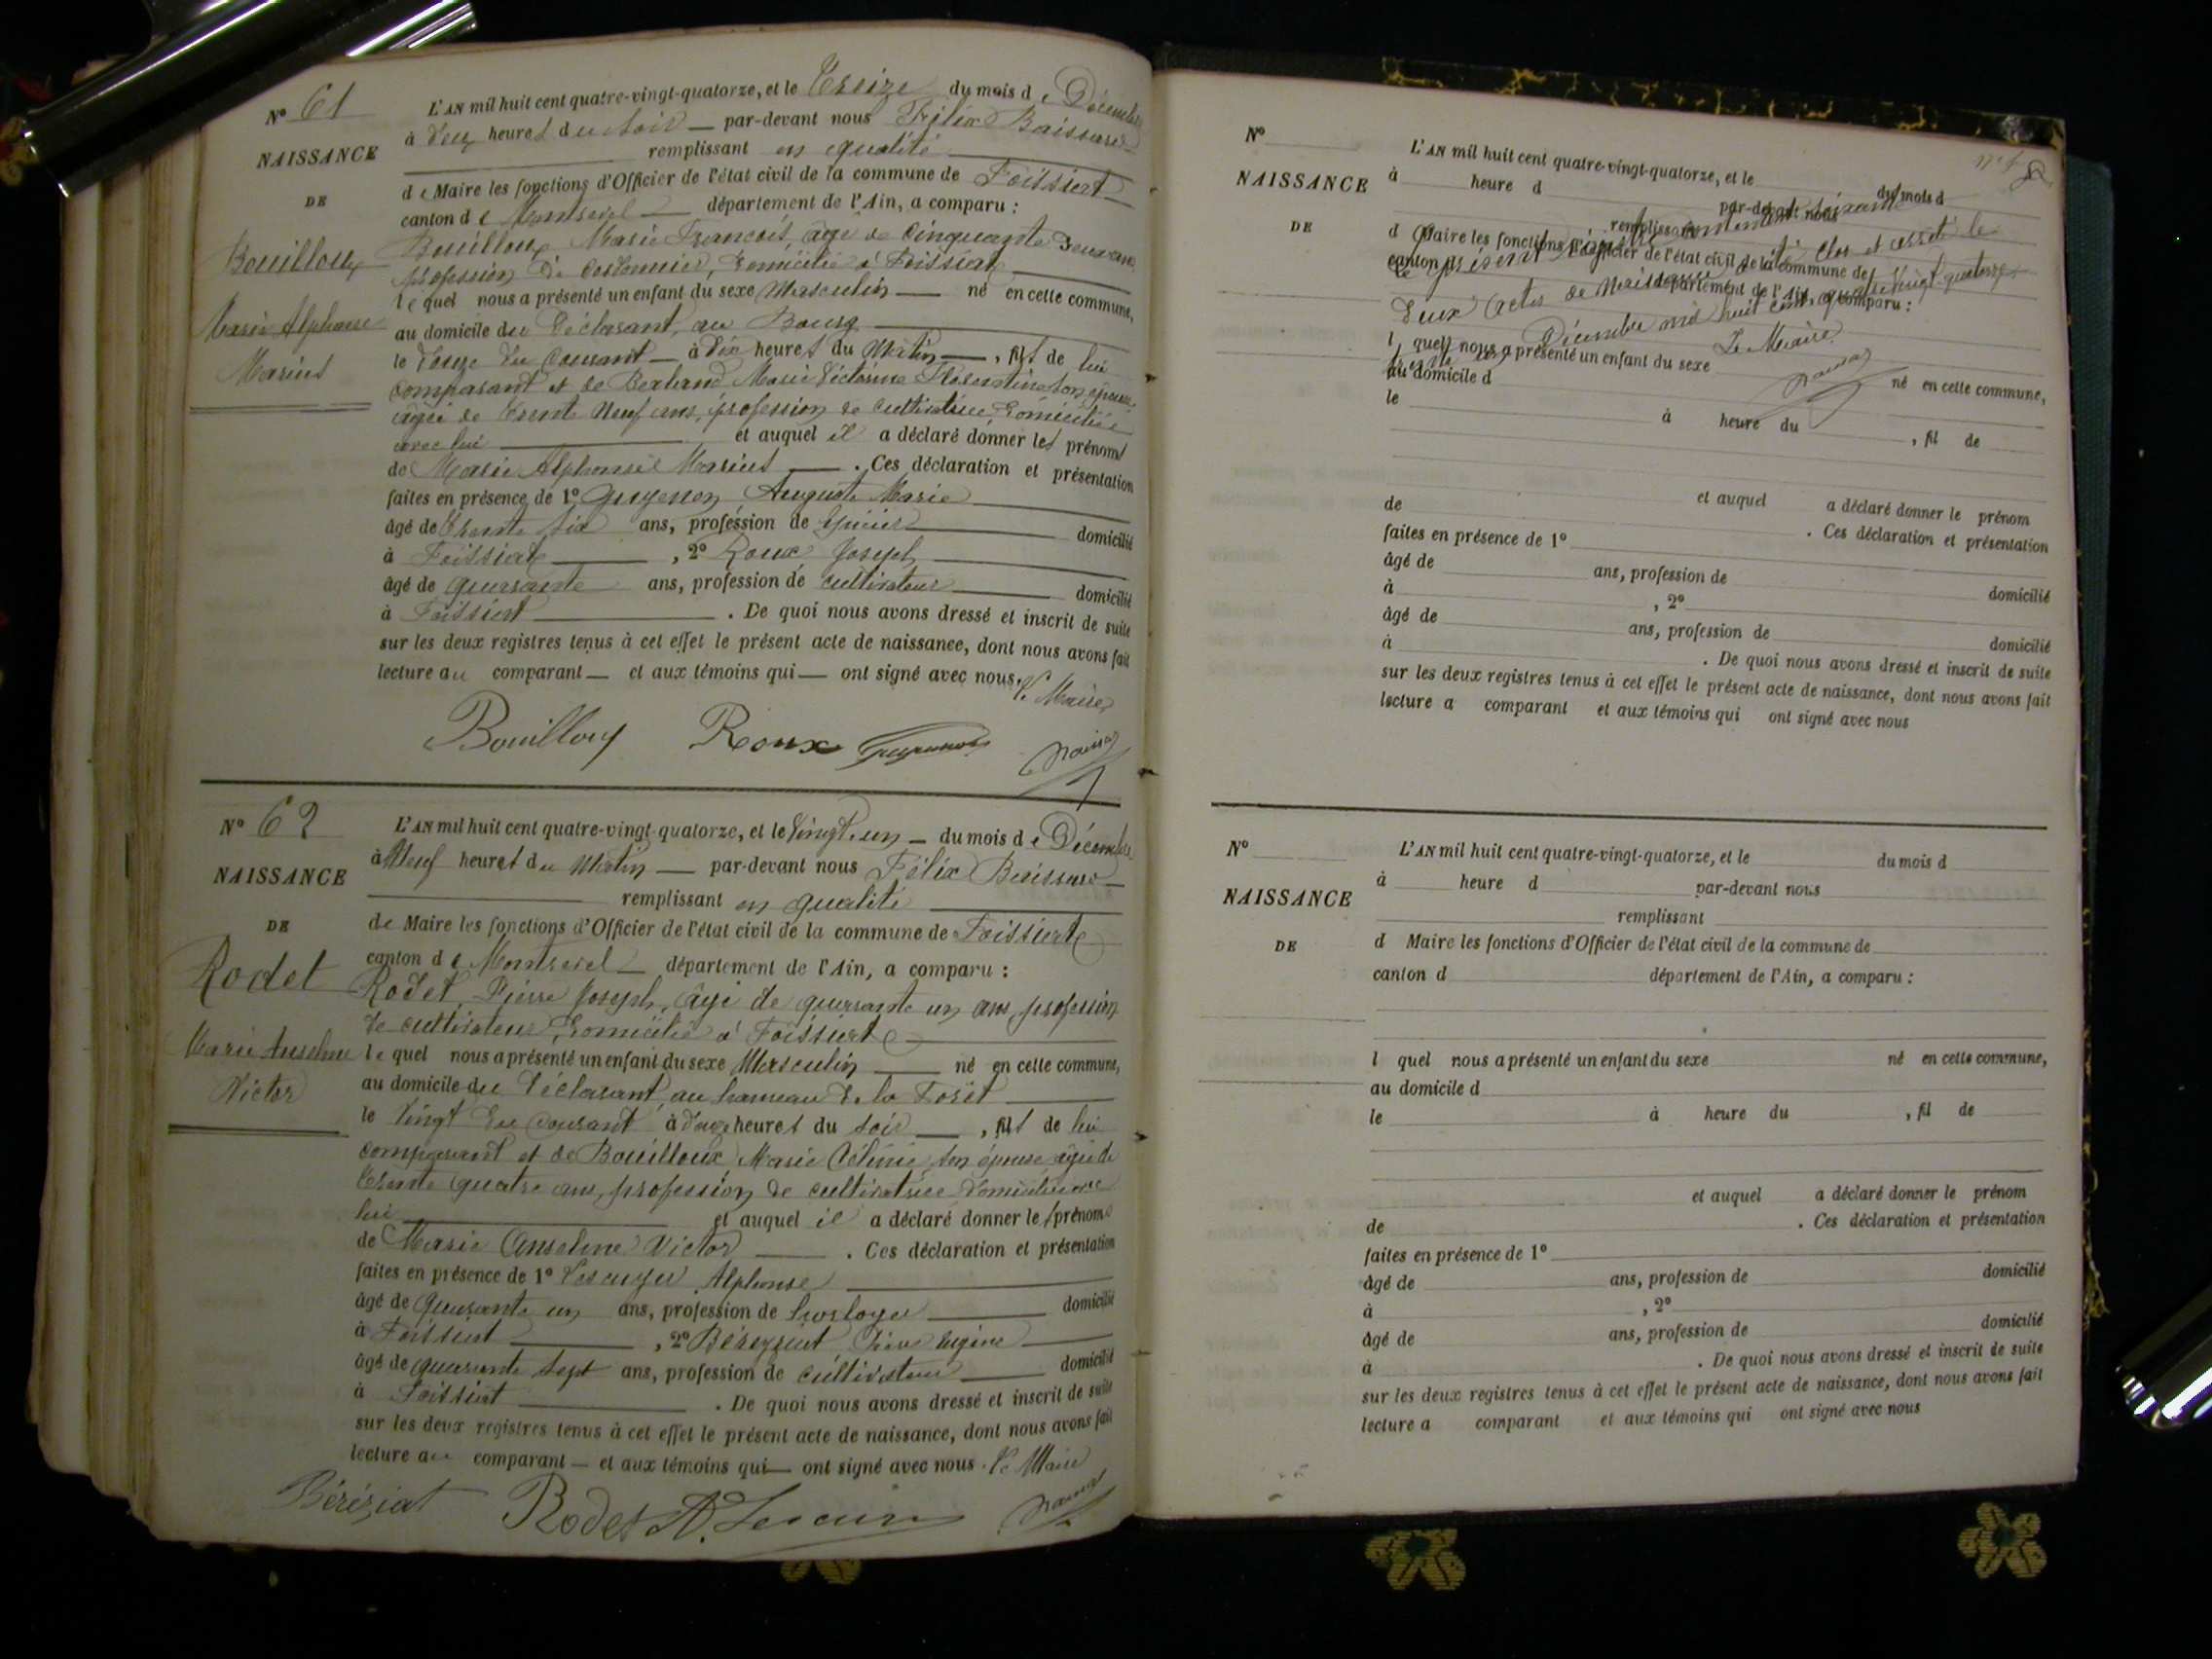 N° 61
NAISSANCE
DE
Bouilloux
Marie Alphonse
Marius
L'AN mil huit cent quatre-vingt-quatorze, et le Treize du mois de Décembre
à deux heures du soir — par-devant nous Félix
remplissant en qualité
de Maire les fonctions d'Officier de l'état civil de la commune de Foissiat
canton de Montrevel département de l'Ain, a comparu :
Bouilloux Marie François, âgé de cinquante deux ans
profession de cordonnier, domicilié à Foissiat
lequel nous a présenté un enfant du sexe Masculin — né en cette commune,
au domicile du déclarant, au Bourg
le douze du courant — à dix heures du Matin —, fils de lui
comparant et de Bertrand Marie Victorine Florentine son épouse
âgée de trente neuf ans, profession de cultivatrice domiciliée
avec lui et auquel il a déclaré donner les prénoms
de Marie Alphonse Marius —. Ces déclaration et présentation
faites en présence de 1° Guyennon Auguste Marie
âgé de trente six ans, profession de épicier domicilié
à Foissiat , 2° Roux Joseph
âgé de quarante ans, profession de cultivateur domicilié
à Foissiat . De quoi nous avons dressé et inscrit de suite
sur les deux registres tenus à cet effet le présent acte de naissance, dont nous avons fait
lecture au comparant — et aux témoins qui — ont signé avec nous. Le Maire
Bouilloux Roux
N° 62
NAISSANCE
DE
Rodet
Marie Anselme
Victor
L'AN mil huit cent quatre-vingt-quatorze, et le Vingt un — du mois de Décembre
à Neuf heures du Matin — par-devant nous Félix
remplissant en qualité
de Maire les fonctions d'Officier de l'état civil de la commune de Foissiat
canton de Montrevel département de l'Ain, a comparu :
Rodet, Pierre Joseph, âgé de quarante un ans, profession
de cultivateur, domicilié à Foissiat
lequel nous a présenté un enfant du sexe Masculin — né en cette commune,
au domicile du déclarant, au hameau de la Forêt
le Vingt du courant à heures du soir —, fils de lui
comparant et de Bouilloux Marie Célinie, son épouse âgée de
trente quatre ans, profession de cultivatrice domiciliée avec
lui et auquel il a déclaré donner les prénoms
de Marie Anselme Victor —. Ces déclaration et présentation
faites en présence de 1° Lescuyer Alphonse
âgé de quarante un ans, profession de horloger domicilié
à Foissiat , 2° Béréziat Eugène
âgé de quarante sept ans, profession de cultivateur domicilié
à Foissiat . De quoi nous avons dressé et inscrit de suite
sur les deux registres tenus à cet effet le présent acte de naissance, dont nous avons fait
lecture au comparant — et aux témoins qui — ont signé avec nous. Le Maire
Béréziat Rodet A.
N°
NAISSANCE
DE
L'AN mil huit cent quatre-vingt-quatorze, et le du mois d
à heure d par-devant nous
remplissant
d Maire les fonctions d'Officier de l'état civil de la commune de
canton d département de l'Ain, a comparu :
Le présent registre contenant soixante
deux actes de naissance a été clos et arrêté le
trente un Décembre mil huit cent quatre vingt quatorze
Le Maire
l quel nous a présenté un enfant du sexe né en cette commune,
au domicile d
le à heure du , fil de
et auquel a déclaré donner le prénom
de . Ces déclaration et présentation
faites en présence de 1°
âgé de ans, profession de domicilié
à , 2°
âgé de ans, profession de domicilié
à . De quoi nous avons dressé et inscrit de suite
sur les deux registres tenus à cet effet le présent acte de naissance, dont nous avons fait
lecture a comparant et aux témoins qui ont signé avec nous
N°
NAISSANCE
DE
L'AN mil huit cent quatre-vingt-quatorze, et le du mois d
à heure d par-devant nous
remplissant
d Maire les fonctions d'Officier de l'état civil de la commune de
canton d département de l'Ain, a comparu :
l quel nous a présenté un enfant du sexe né en cette commune,
au domicile d
le à heure du , fil de
et auquel a déclaré donner le prénom
de . Ces déclaration et présentation
faites en présence de 1°
âgé de ans, profession de domicilié
à , 2°
âgé de ans, profession de domicilié
à . De quoi nous avons dressé et inscrit de suite
sur les deux registres tenus à cet effet le présent acte de naissance, dont nous avons fait
lecture a comparant et aux témoins qui ont signé avec nous